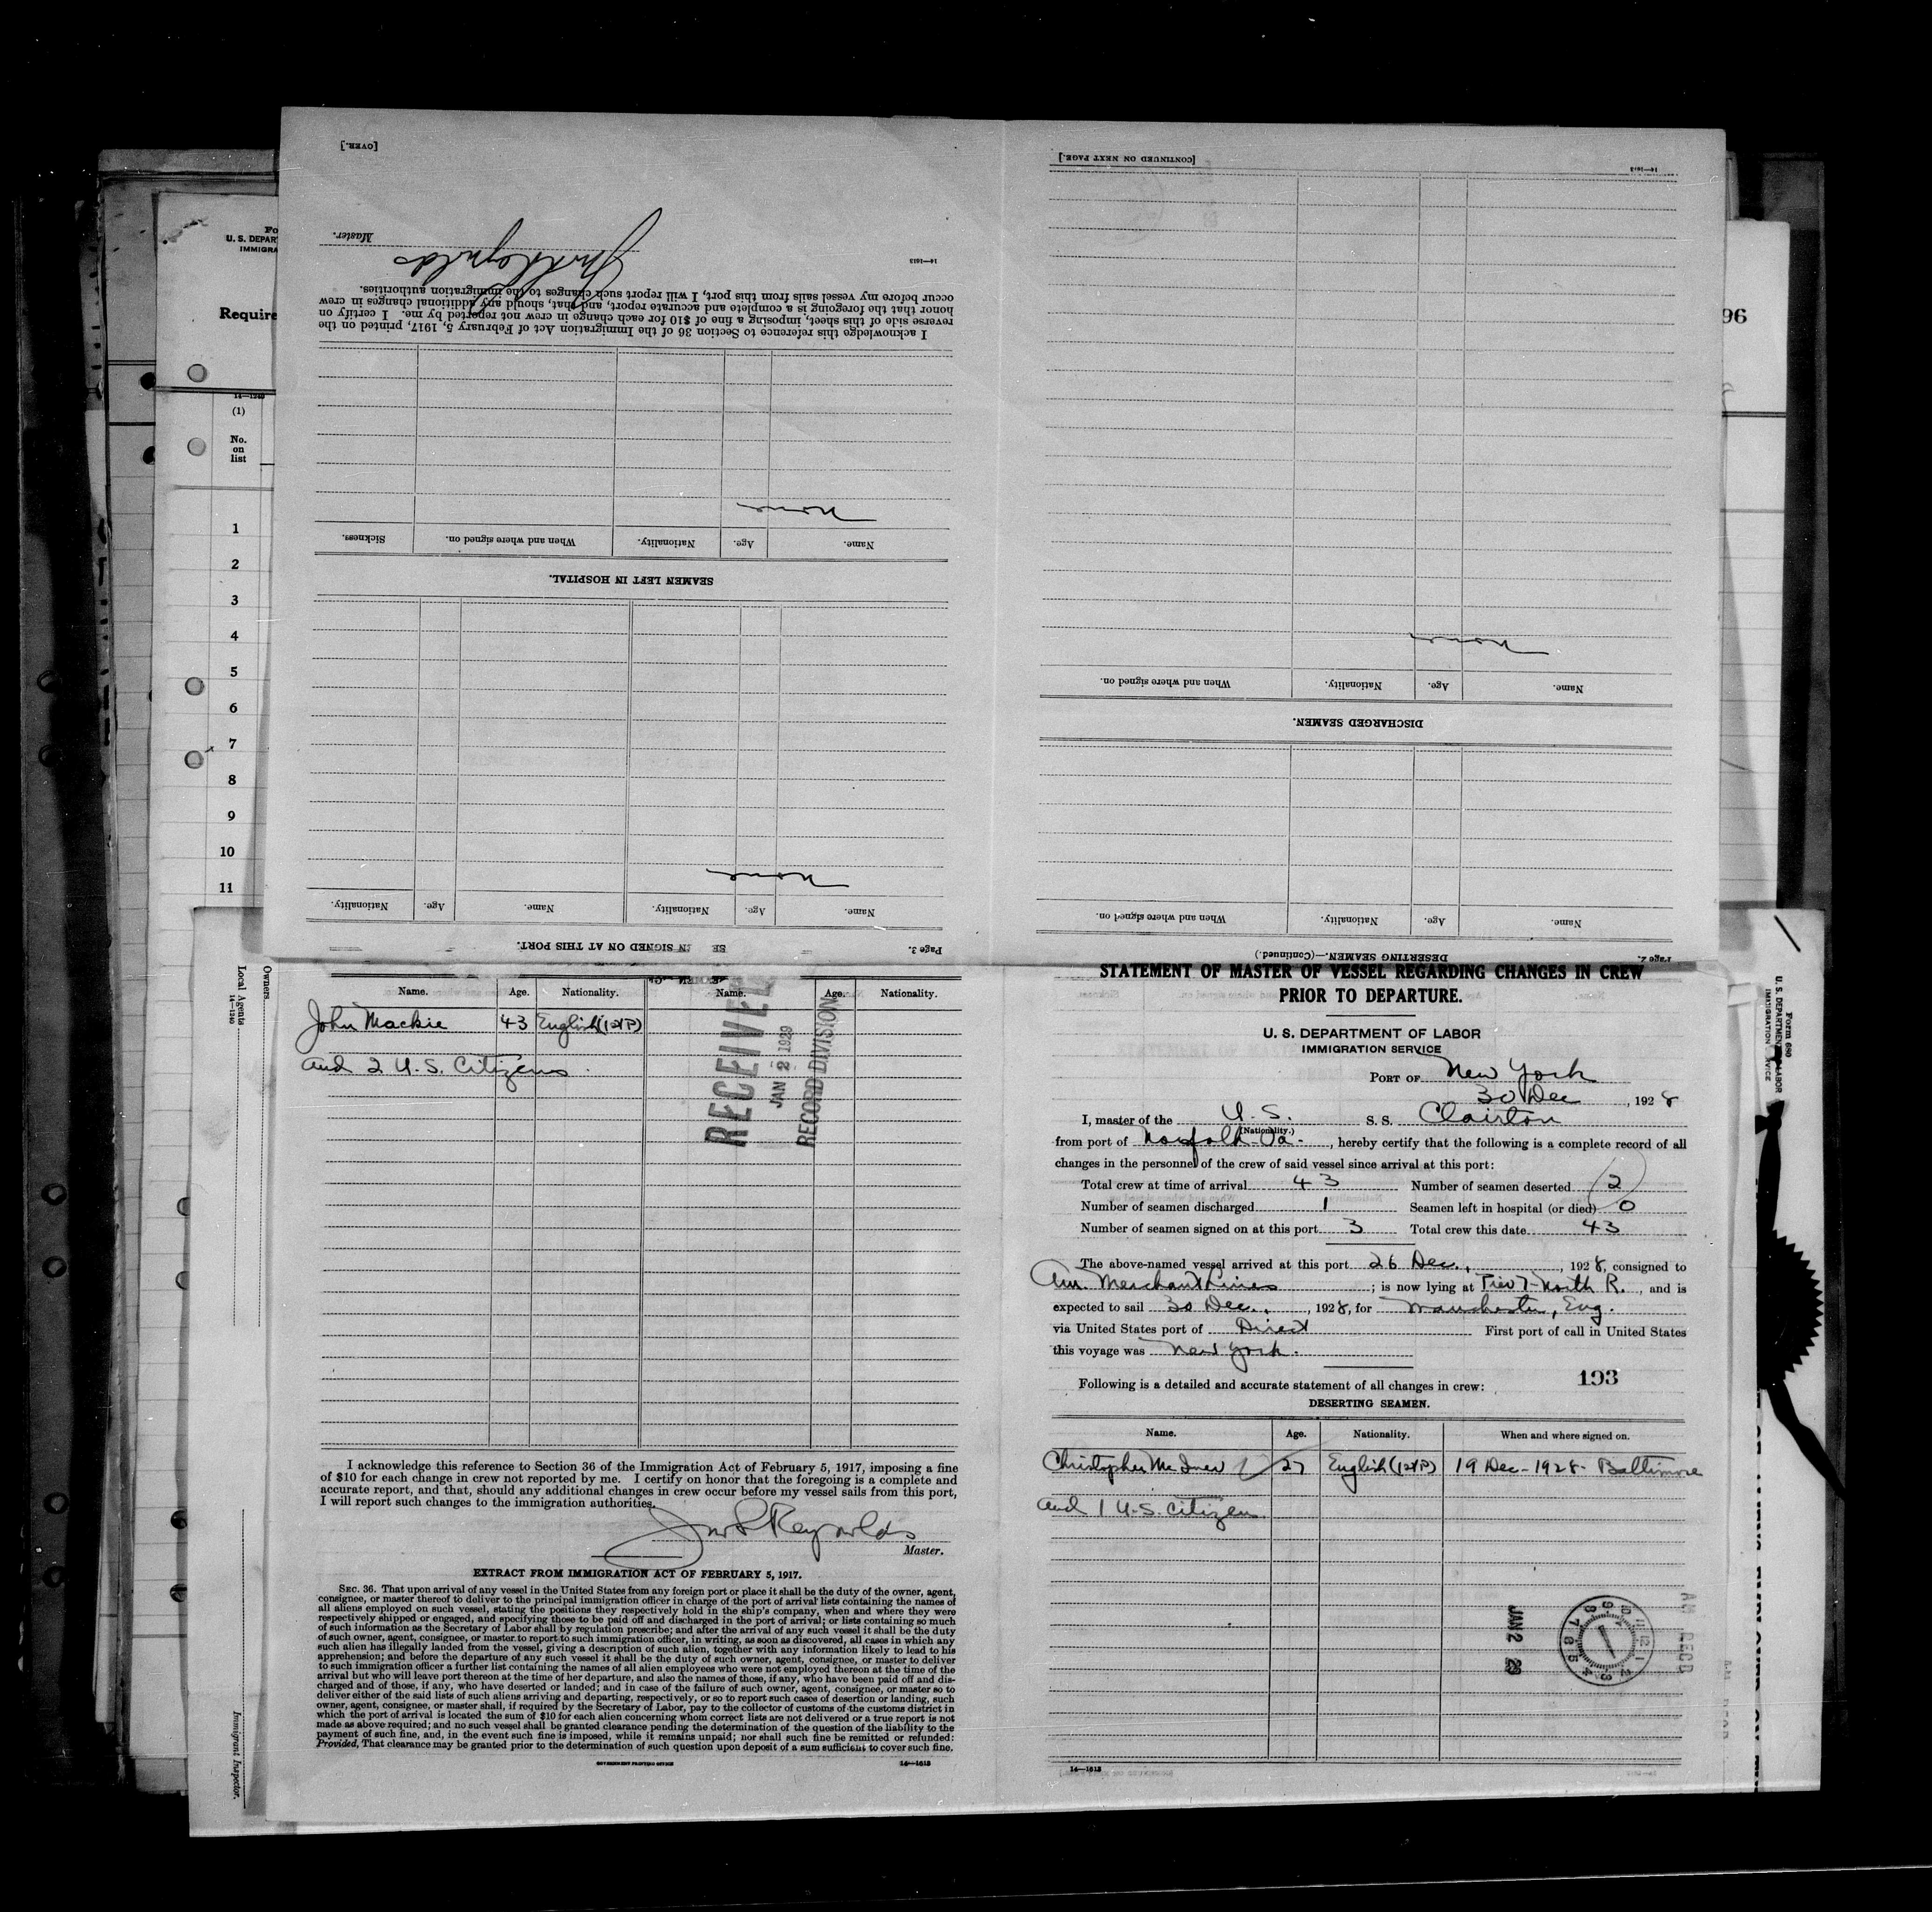 STATEMENT OF MASTER OF VESSEL REGARDING CHANGES IN CREW
PRIOR TO DEPARTURE.
U. S. DEPARTMENT OF LABOR
IMMIGRATION SERVICE
PORT OF New York
30 Dec , 1928
I, master of the U. S. S. S. Clairton
(Nationality.)
from port of Norfolk Va. , hereby certify that the following is a complete record of all
changes in the personnel of the crew of said vessel since arrival at this port:
Total crew at time of arrival 43 Number of seamen deserted 2
Number of seamen discharged 1 Seamen left in hospital (or died) 0
Number of seamen signed on at this port 3 Total crew this date 43
The above-named vessel arrived at this port 26 Dec. , 1928, consigned to
Am. Merchant Lines ; is now lying at Pier 7 - North R. , and is
expected to sail 30 Dec. , 1928, for Manchester, Eng.
via United States port of Direct First port of call in United States
this voyage was New York.
193
Following is a detailed and accurate statement of all changes in crew:
DESERTING SEAMEN.
Name. Age. Nationality. When and where signed on.
Christopher Mc 27 English 19 Dec - 1928 - Baltimore
and 1 U.S. citizen
JAN 2 29
AM RECD
14—1613
Page 2.
DESERTING SEAMEN.—(Continued.)
Name. Age. Nationality. When and where signed on.
DISCHARGED SEAMEN.
Name. Age. Nationality. When and where signed on.
None
14—1613
[CONTINUED ON NEXT PAGE.]
Page 3.
SIGNED ON AT THIS PORT.
Name. Age. Nationality. Name. Age. Nationality.
None
SEAMEN LEFT IN HOSPITAL.
Name. Age. Nationality. When and where signed on. Sickness.
None
I acknowledge this reference to Section 36 of the Immigration Act of February 5, 1917, printed on the
reverse side of this sheet, imposing a fine of $10 for each change in crew not reported by me. I certify on
honor that the foregoing is a complete and accurate report, and that, should any additional changes in crew
occur before my vessel sails from this port, I will report such changes to the immigration authorities.
14—1613
Reynolds
Master.
[OVER.]
Name. Age. Nationality. Name. Age. Nationality.
John Mackie 43 English
and 2 U.S. Citizens
RECEIVED
JAN 2 1929
RECORD DIVISION
I acknowledge this reference to Section 36 of the Immigration Act of February 5, 1917, imposing a fine
of $10 for each change in crew not reported by me. I certify on honor that the foregoing is a complete and
accurate report, and that, should any additional changes in crew occur before my vessel sails from this port,
I will report such changes to the immigration authorities.
Reynolds
Master.
EXTRACT FROM IMMIGRATION ACT OF FEBRUARY 5, 1917.
SEC. 36. That upon arrival of any vessel in the United States from any foreign port or place it shall be the duty of the owner, agent,
consignee, or master thereof to deliver to the principal immigration officer in charge of the port of arrival lists containing the names of
all aliens employed on such vessel, stating the positions they respectively hold in the ship's company, when and where they were
respectively shipped or engaged, and specifying those to be paid off and discharged in the port of arrival; or lists containing so much
of such information as the Secretary of Labor shall by regulation prescribe; and after the arrival of any such vessel it shall be the duty
of such owner, agent, consignee, or master to report to such immigration officer, in writing, as soon as discovered, all cases in which any
such alien has illegally landed from the vessel, giving a description of such alien, together with any information likely to lead to his
apprehension; and before the departure of any such vessel it shall be the duty of such owner, agent, consignee, or master to deliver
to such immigration officer a further list containing the names of all alien employees who were not employed thereon at the time of the
arrival but who will leave port thereon at the time of her departure, and also the names of those, if any, who have been paid off and dis-
charged and of those, if any, who have deserted or landed; and in case of the failure of such owner, agent, consignee, or master so to
deliver either of the said lists of such aliens arriving and departing, respectively, or so to report such cases of desertion or landing, such
owner, agent, consignee, or master shall, if required by the Secretary of Labor, pay to the collector of customs of the customs district in
which the port of arrival is located the sum of $10 for each alien concerning whom correct lists are not delivered or a true report is not
made as above required; and no such vessel shall be granted clearance pending the determination of the question of the liability to the
payment of such fine, and, in the event such fine is imposed, while it remains unpaid; nor shall such fine be remitted or refunded:
Provided, That clearance may be granted prior to the determination of such question upon deposit of a sum sufficient to cover such fine.
GOVERNMENT PRINTING OFFICE
14—1613
Fo
U. S. DEPART
IMMIGRA
Require
14—1240
(1)
No.
on
list
1
2
3
4
5
6
7
8
9
10
11
Owners
Local Agents
14—1240
Immigrant Inspector.
96
Form 680
U. S. DEPARTMENT OF LABOR
IMMIGRATION SERVICE